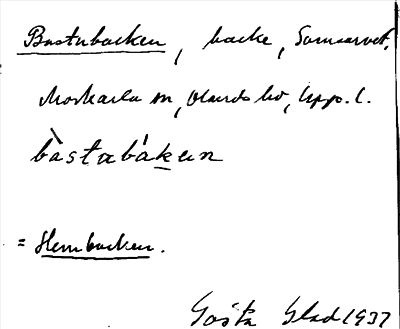 Bastubacken, backe, Somsarvet,
Morkarla sn, Olands hd, Upps. l.
bàstabákεn
= Hembacken.
Gösta Glad 1937